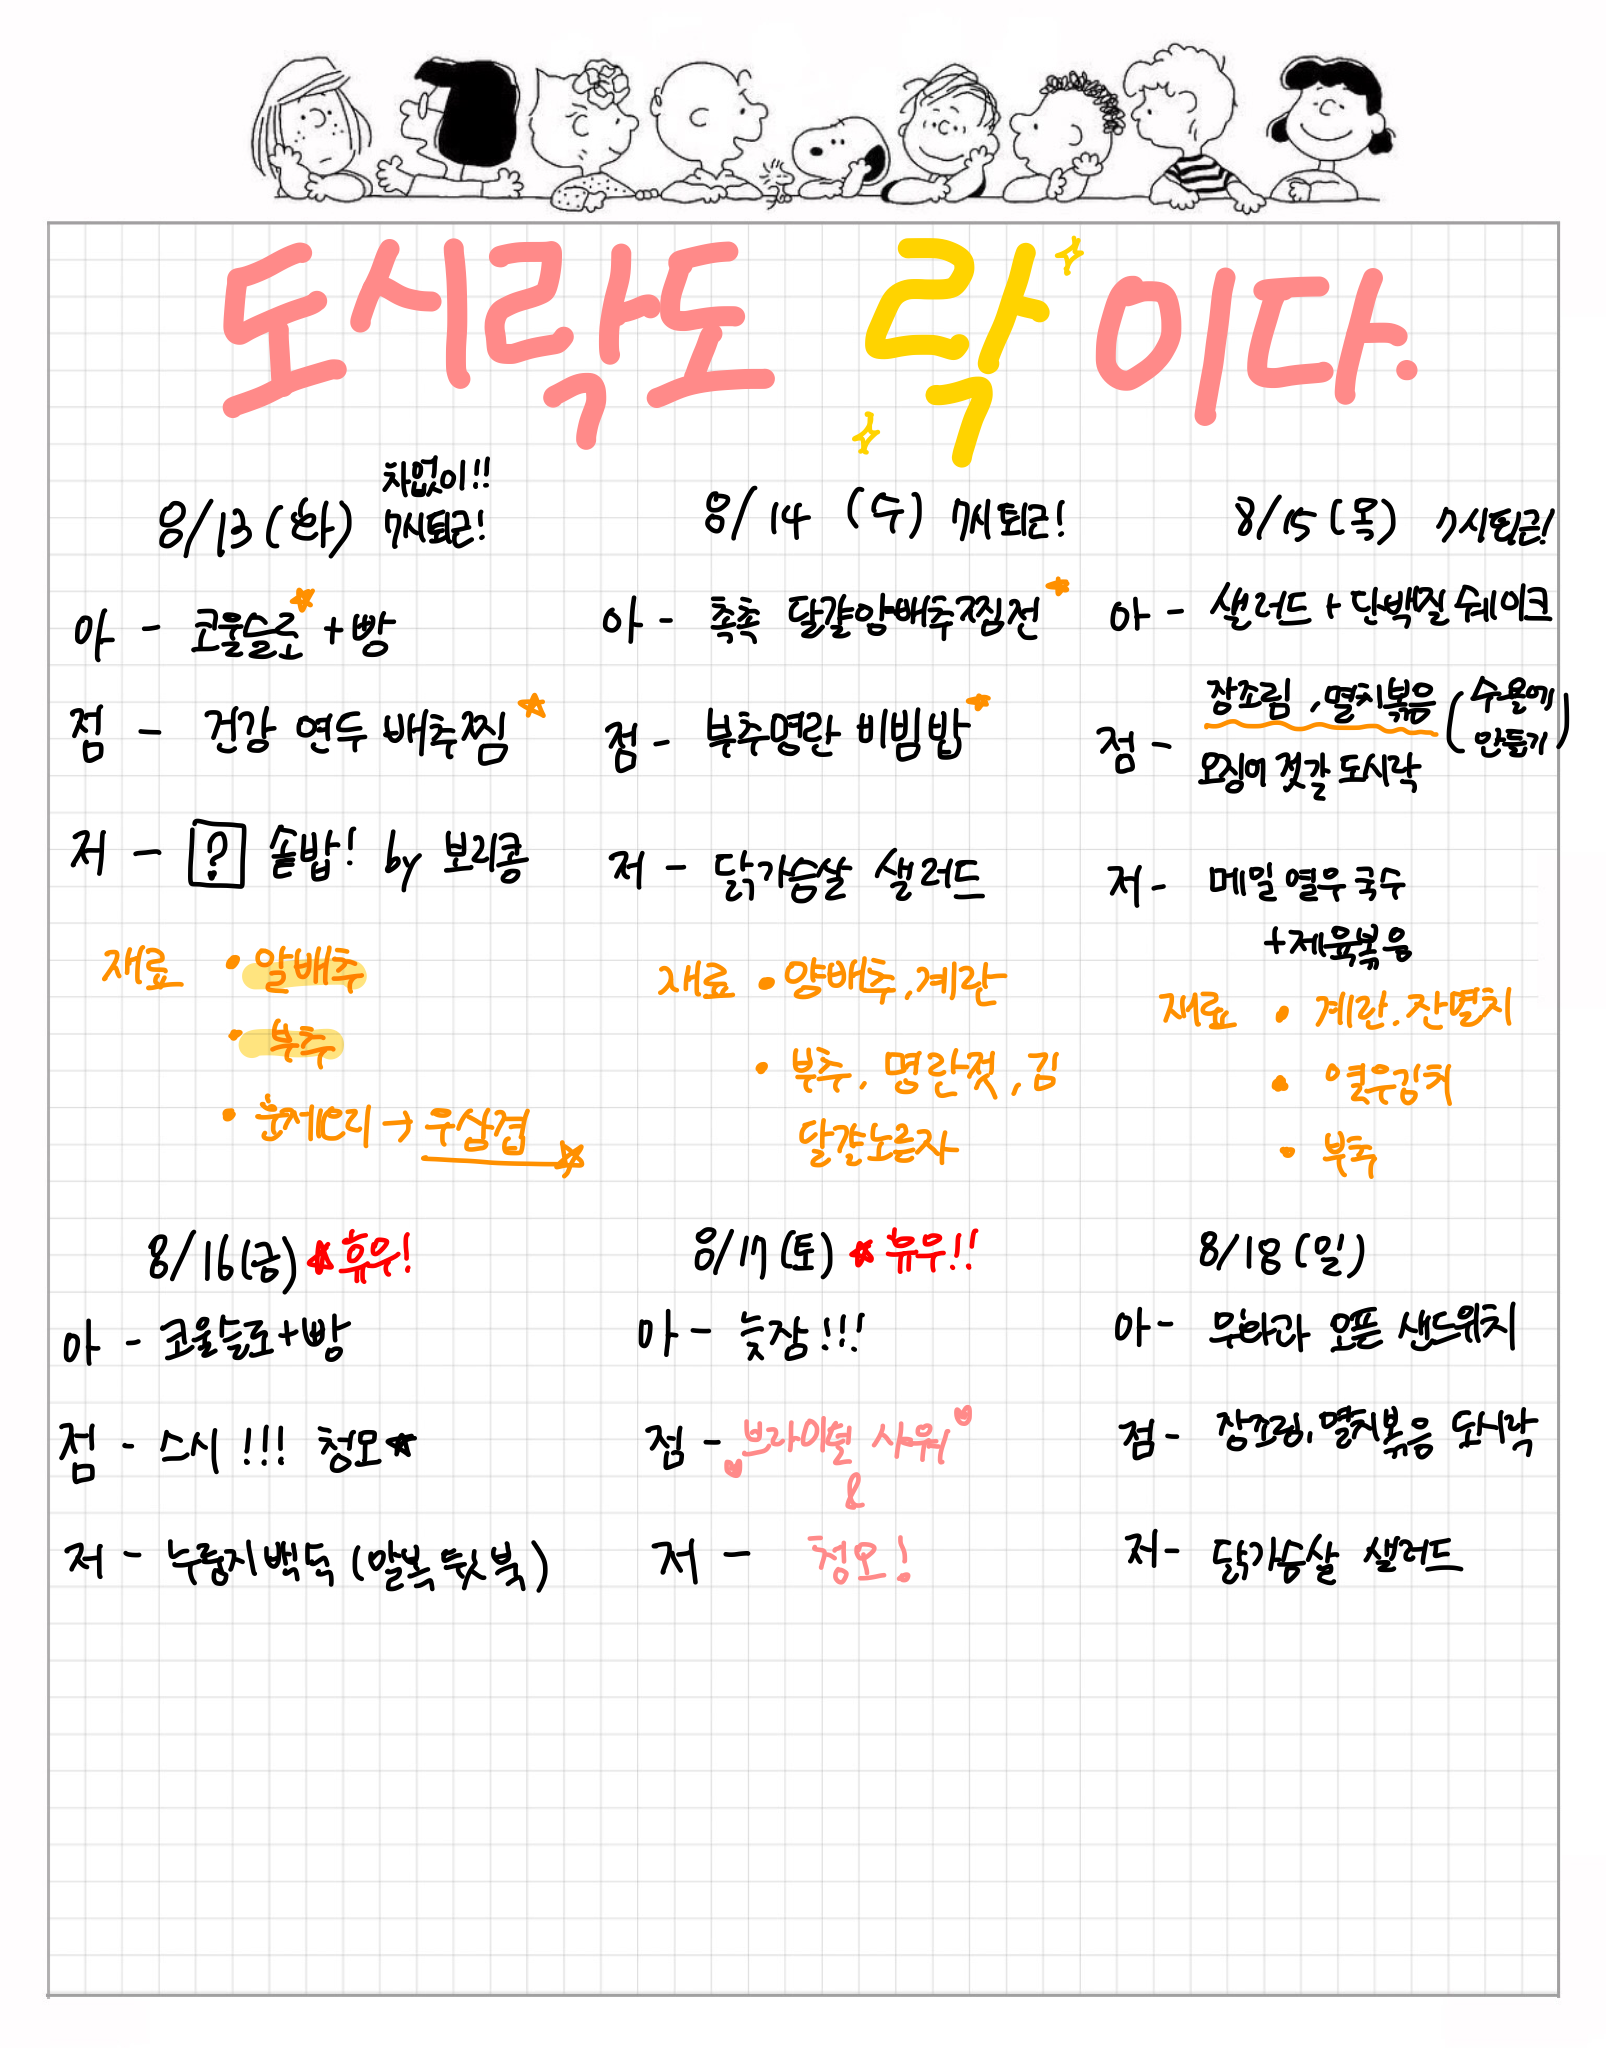 도시락도 락이다.
8/13 (화) 차없이!! 7시퇴근!
아 - 코울슬로 + 빵
점 - 건강 연두 배추찜
저 - ? 솥밥! by 보리콩
재료 • 알배추
• 부추
• 훈제오리 → 우삼겹
8/14 (수) 7시퇴근!
아 - 촉촉 달걀양배추찜전
점 - 부추명란 비빔밥
저 - 닭가슴살 샐러드
재료 • 양배추, 계란
• 부추, 명란젓, 김
달걀노른자
8/15 (목) 7시퇴근!
아 - 샐러드 + 단백질 쉐이크
점 - 장조림, 멸치볶음 (수욜에 만들기)
오징어 젓갈 도시락
저 - 메밀 열무 국수
+제육볶음
재료 • 계란. 잔멸치
• 열무김치
• 부추
8/16 (금) 휴우!
아 - 코울슬로+빵
점 - 스시 !!! 청모
저 - 누룽지백숙 (말복 뚜둣)
8/17 (토) 휴우!!
아 - 늦잠 !!!
점 - 브라이덜 샤워
&
저 - 청모!
8/18 (일)
아 - 무화과 오픈 샌드위치
점 - 장조림, 멸치볶음 도시락
저 - 닭가슴살 샐러드